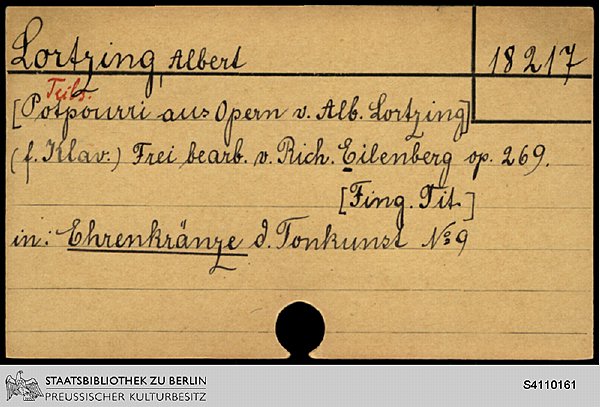 Lortzing, Albert
18217
Teils.
[Potpourri aus Opern v. Alb. Lortzing]
(f. Klav.) Frei bearb. v. Rich. Eilenberg op. 269.
[Fing. Tit.]
in: Ehrenkränze d. Tonkunst No 9
STAATSBIBLIOTHEK ZU BERLIN
PREUSSISCHER KULTURBESITZ
S4110161